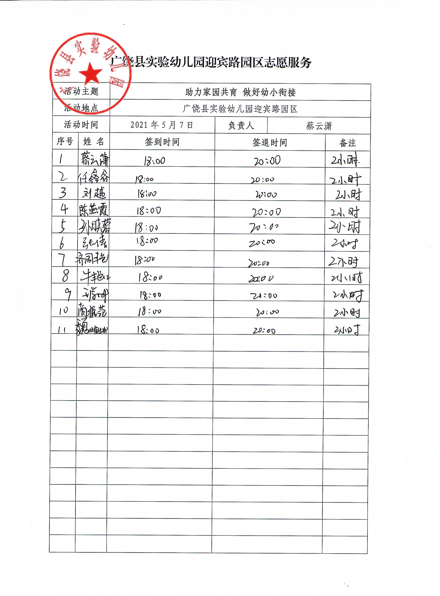 广饶县实验幼儿园迎宾路园区志愿服务
活动主题 助力家园共育 做好幼小衔接
活动地点 广饶县实验幼儿园迎宾路园区
活动时间 2021年5月7日 负责人 蔡云潇
序号 姓名 签到时间 签退时间 备注
1 蔡云潇 18:00 20:00 2小时
2 18:00 20:00 2小时
3 刘越 18:00 20:00 2小时
4 陈燕霞 18:00 20:00 2小时
5 18:00 20:00 2小时
6 18:00 20:00 2小时
7 18:00 20:00 2小时
8 18:00 20:00 2小时
9 18:00 20:00 2小时
10 18:00 20:00 2小时
11 18:00 20:00 2小时